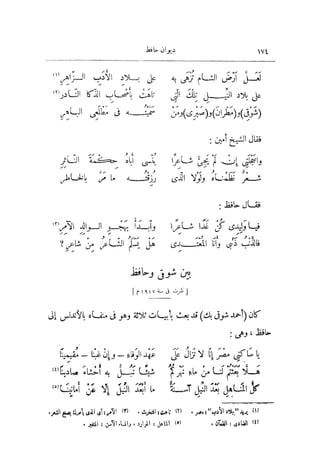 ١٧٤ ديوان حافظ
لعل أرض الشام تزهى به على بلاد الأدب الزاهر (١)
على بلاد النيل تلك التى تاهت بأصحاب الذكا النادر (٢)
(شوقى) و(مطران) و(صبرى) ومن سميته فى مطلعى الباهر
فقال الشيخ أمين :
واخجلتى إن لم يجئ شاعرًا ينسى أباه حكمة الناثر
شعر نظمناه ولولا الذى رزقته ما مر بالخاطر
فقال حافظ :
فيا وليدى كن غدا شاعرا وابدأ بهجو الوالد الآمر (٣)
فالذنب ذنبى وأنا المعتدى هل يسلم الشاعر من شاعر ؟
بين شوقى وحافظ
[نشرت فى سنة ١٩١٧ م]
كان (أحمد شوقى بك) قد بعث بأبيات ثلاثة وهو فى منفاه بالأندلس إلى
حافظ ، وهى :
يا ساكنى مصر إنا لا نزال على عهد الوفاء – وإن غبنا – مقيمينا
هلا بعثتم لنا من ماء نهركم شيئا نبل به أحشاء صادينا (٤)
كل المناهل بعد النيل آسنة ما أبعد النيل إلا عن أمانينا (٥)
(١) يريد "ببلاد الأدب" : مصر . (٢) تاهت : افتخرت . (٣) الآمر : أى الذى يأمره بصنع الشعر .
(٤) الصادى : الظمآن . (٥) المناهل : الموارد . والماء الآسن : المتغير .